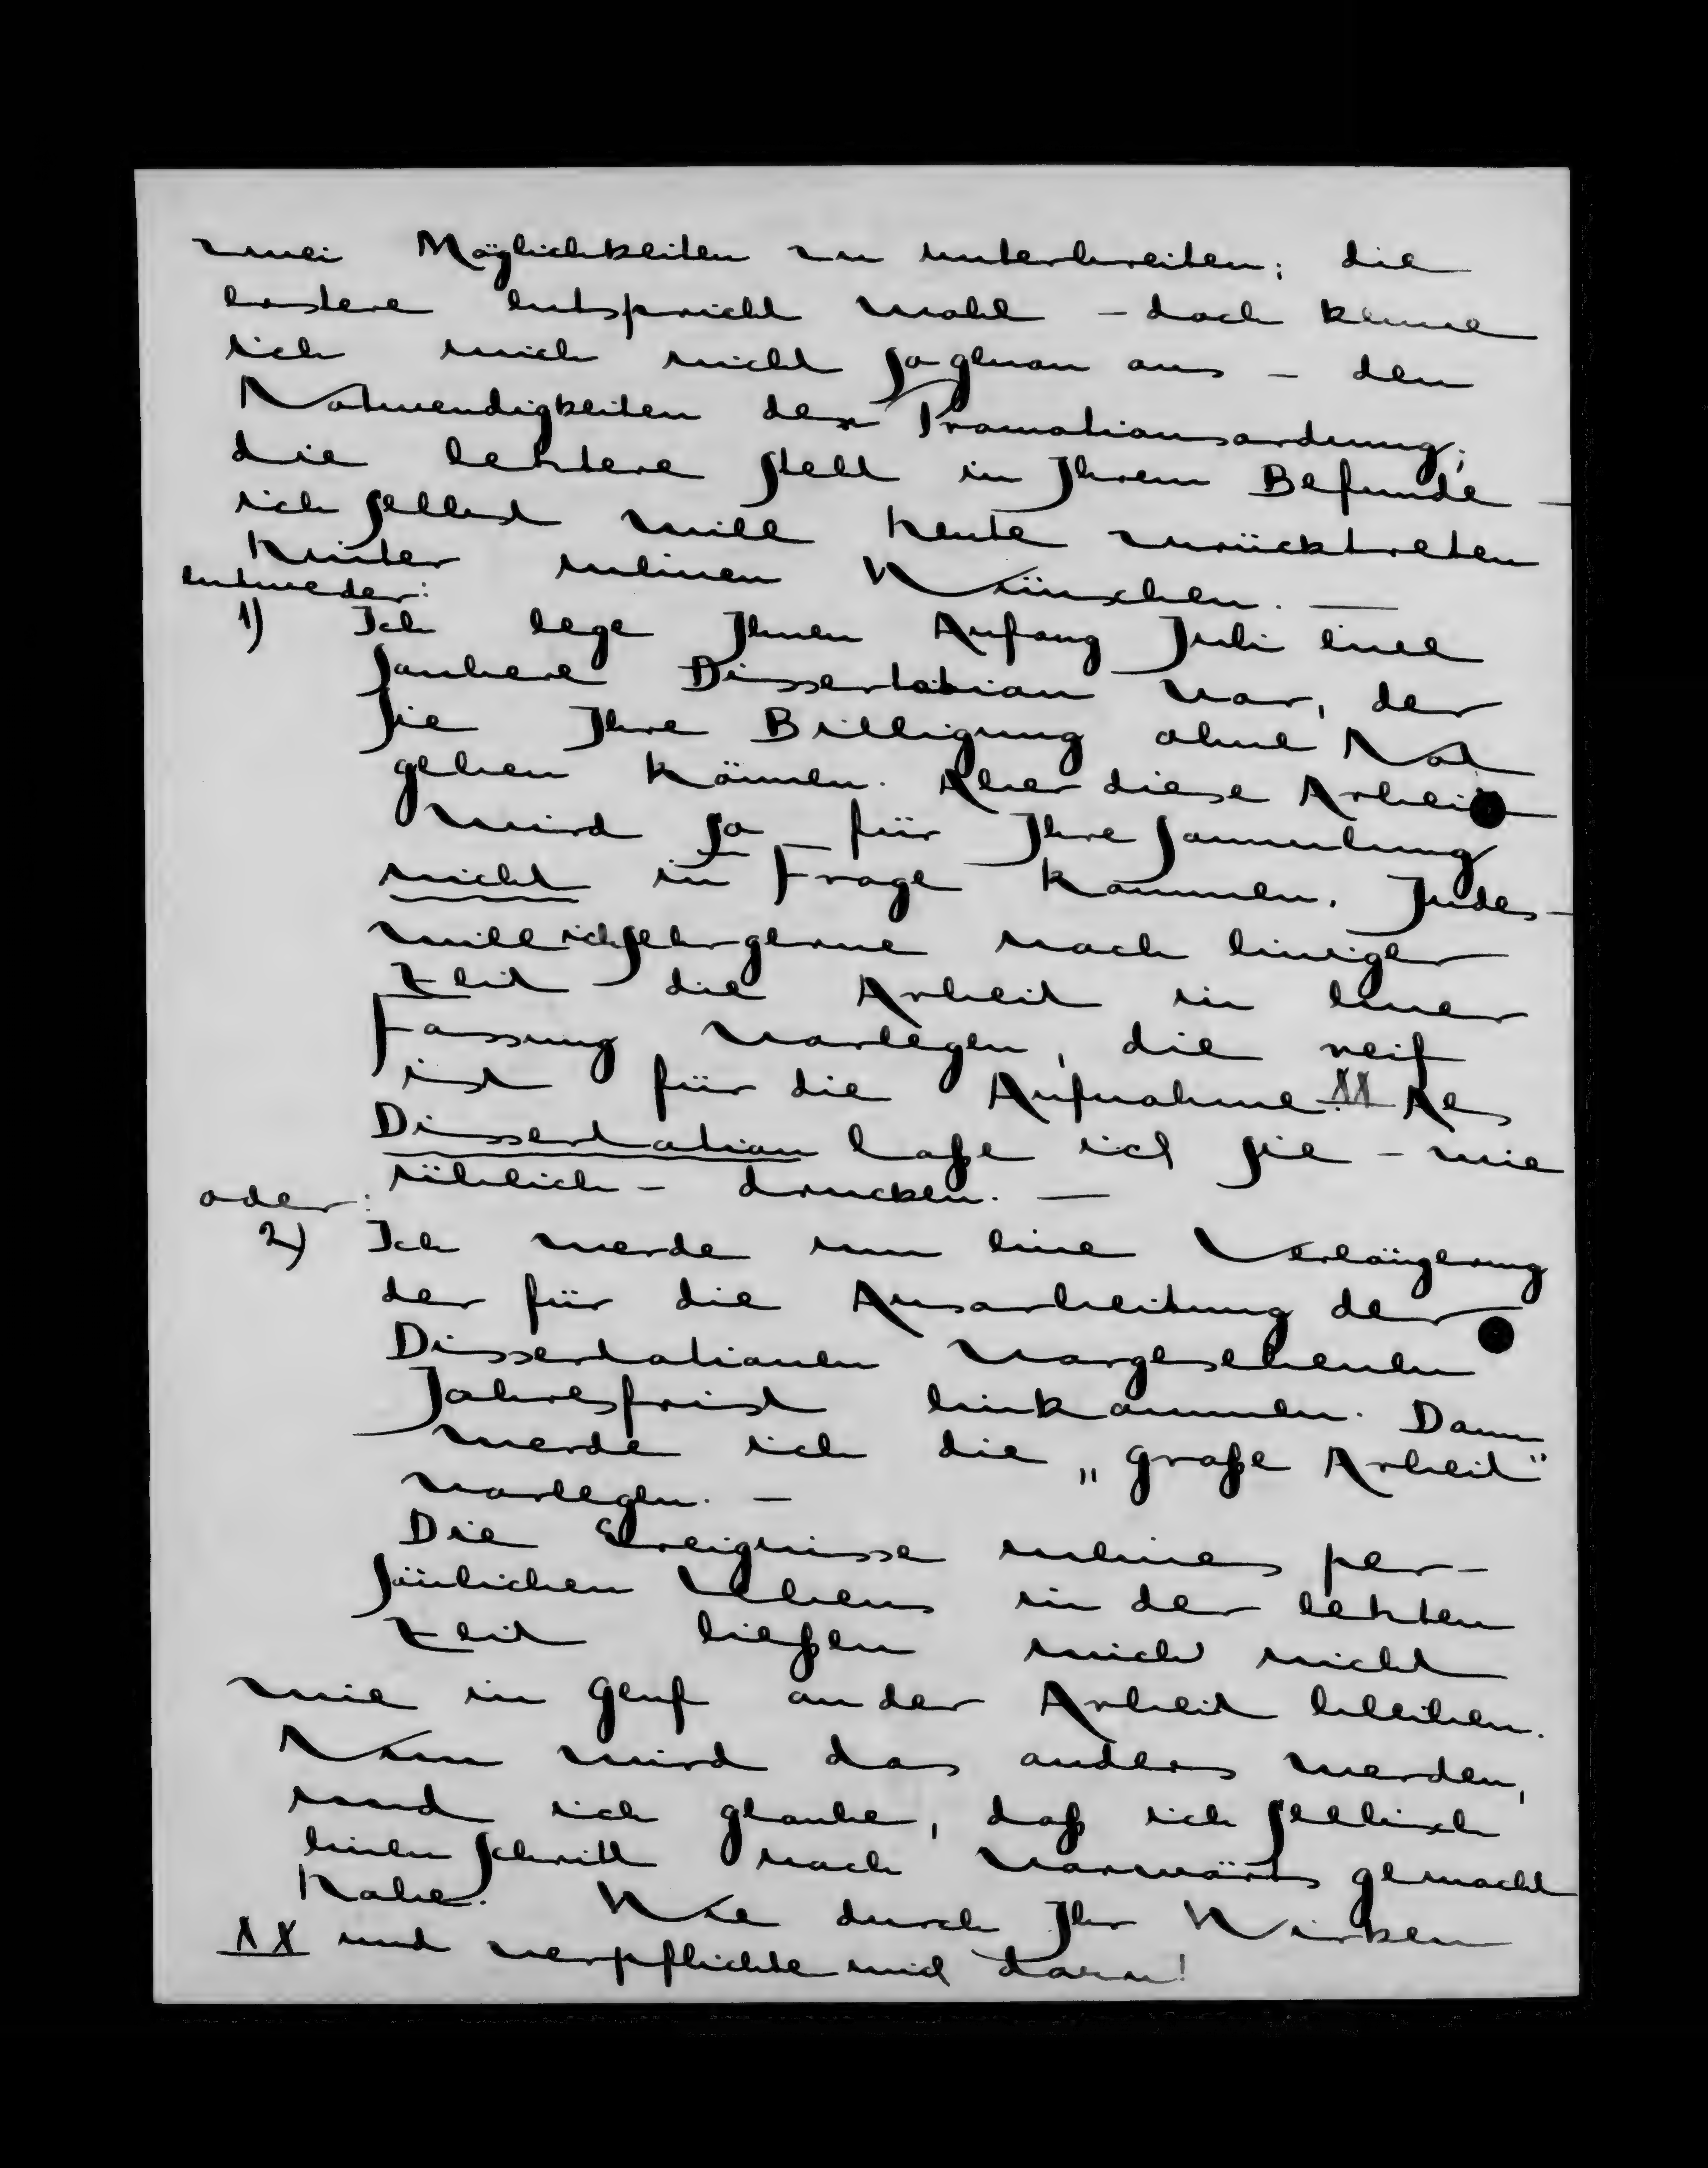 zwei Möglichkeiten zu unterbreiten; die
erstere entspricht wohl – doch kenne
ich mich nicht so genau aus – den
Notwendigkeiten der Promotionsordnung;
die letztere steht in Ihrem Befunde –
ich selbst will heute zurücktreten
hinter meinen Wünschen. —
entweder:
1) Ich lege Ihnen Anfang Juli eine
saubere Dissertation vor, der
Sie Ihre Billigung ohne Not
geben können. Aber diese Arbeit
wird so für Ihre Sammlung
nicht in Frage kommen. Indes –
will ich sehr gerne nach einiger
Zeit die Arbeit in einer
Fassung vorlegen, die reif
ist für die Aufnahme. XX Als
Dissertation laße ich sie – wie
üblich – drucken. —
oder:
2) Ich werde um eine Verlängerung
der für die Ausarbeitung der
Dissertationen vorgesehenen
Jahresfrist einkommen. Dann
werde ich die „große Arbeit"
vorlegen. —
Die Ereignisse meines per-
sönlichen Lebens in der letzten
Zeit ließen mich nicht
wie in Genf an der Arbeit bleiben.
Nun wird das anders werden,
und ich glaube, daß ich seelisch
einen Schritt nach vorwärts gemacht
habe. Wie durch Ihr Wirken
XX und verpflichte mich dazu!